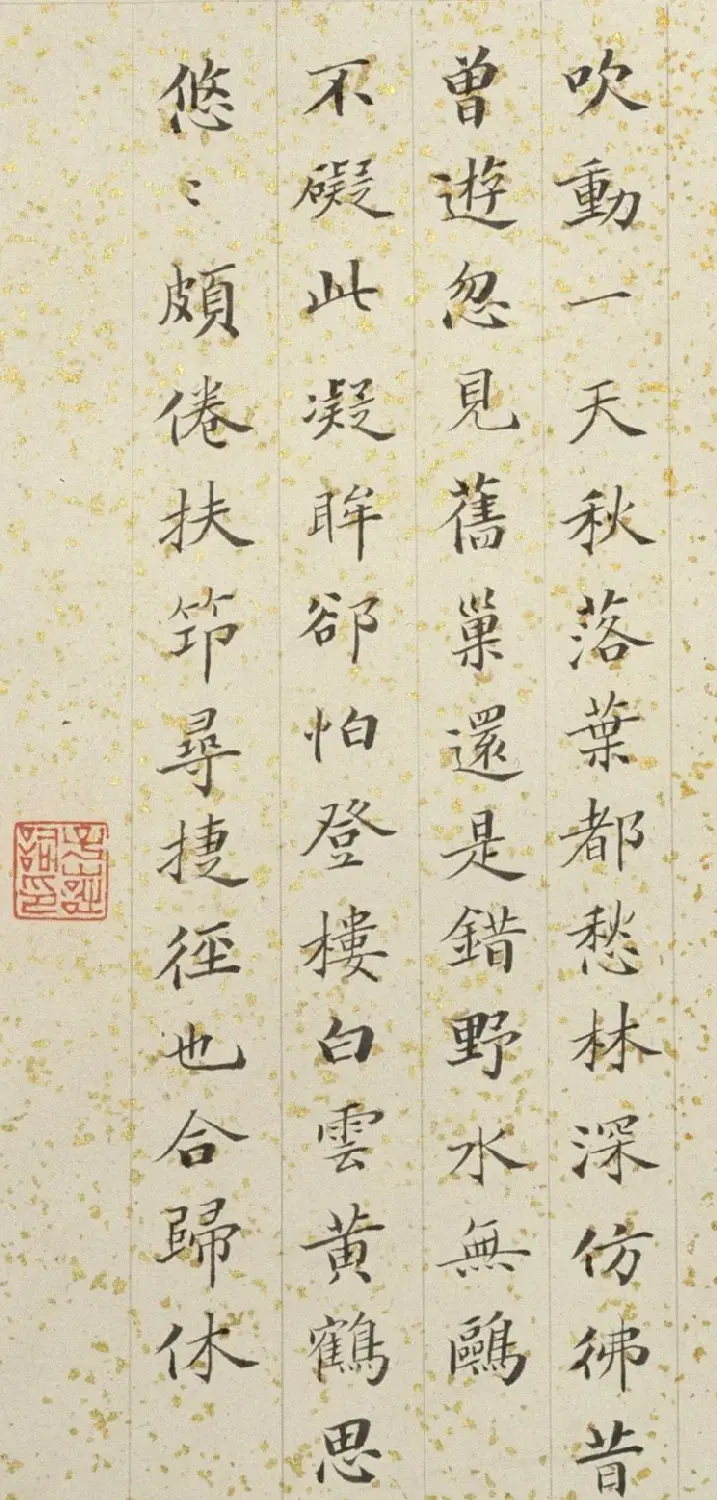 吹動一天秋落葉都愁林深仿彿昔
曾遊忽見舊巢還是錯野水無鷗
不礙此凝眸郤怕登樓白雲黃鶴思
悠〻頗倦扶笻尋捷徑也合歸休